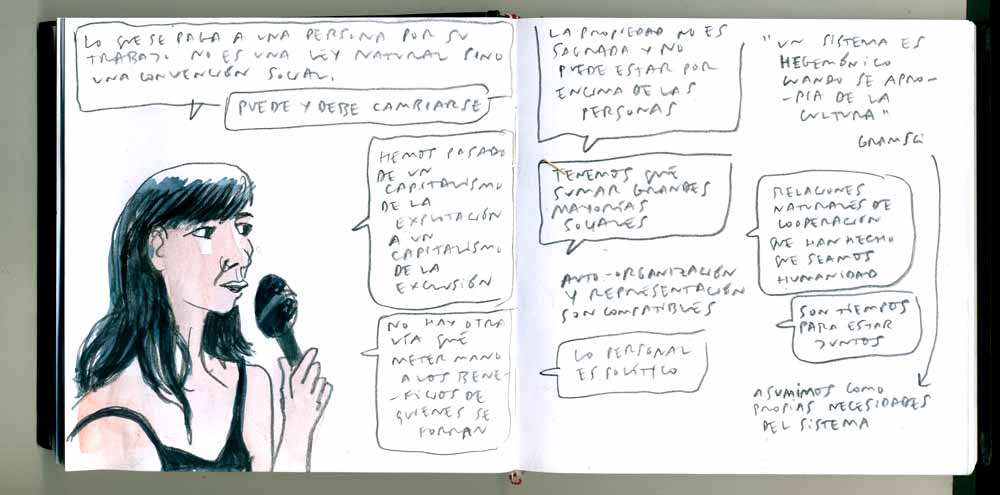 LO QUE SE PAGA A UNA PERSONA POR SU
TRABAJO NO ES UNA LEY NATURAL SINO
UNA CONVENCIÓN SOCIAL.
PUEDE Y DEBE CAMBIARSE
HEMOS PASADO
DE UN
CAPITALISMO
DE LA
EXPLOTACIÓN
A UN
CAPITALISMO
DE LA
EXCLUSIÓN
NO HAY OTRA
VÍA QUE
METER MANO
A LOS BENE-
-FICIOS DE
QUIENES SE
FORRAN
LA PROPIEDAD NO ES
SAGRADA Y NO
PUEDE ESTAR POR
ENCIMA DE LAS
PERSONAS
TENEMOS QUE
SUMAR GRANDES
MAYORÍAS
SOCIALES
AUTO-ORGANIZACIÓN
Y REPRESENTACIÓN
SON COMPATIBLES
LO PERSONAL
ES POLÍTICO
"UN SISTEMA ES
HEGEMÓNICO
CUANDO SE APRO-
-PIA DE LA
CULTURA"
GRAMSCI
RELACIONES
NATURALES DE
COOPERACIÓN
QUE HAN HECHO
QUE SEAMOS
HUMANIDAD
SON TIEMPOS
PARA ESTAR
JUNTOS
ASUMIMOS COMO
PROPIAS NECESIDADES
DEL SISTEMA